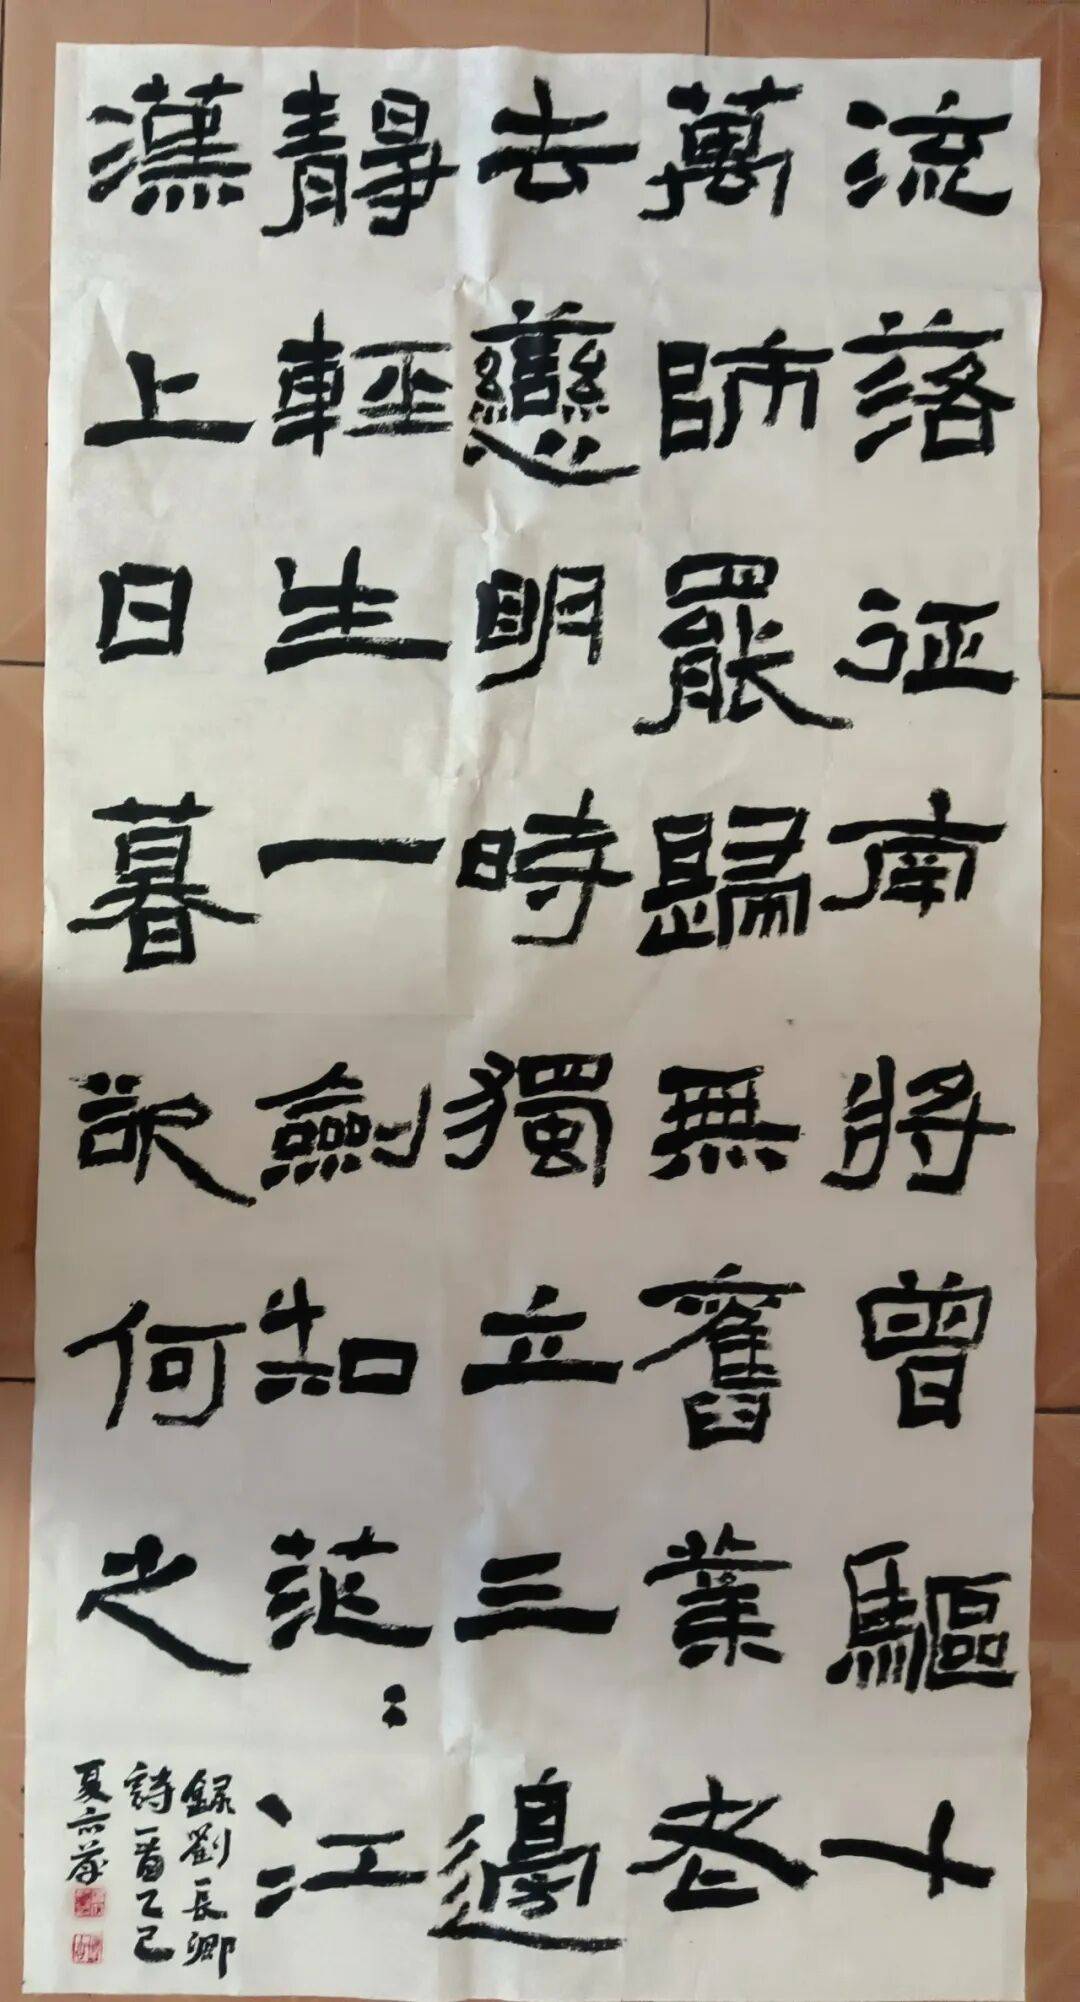 流落征南將曾驅十
萬師罷歸無舊業老
去戀明時獨立三邊
靜輕生一劍知茫:江
漢上日暮欲何之
錄劉長卿
詩一首乙巳
夏